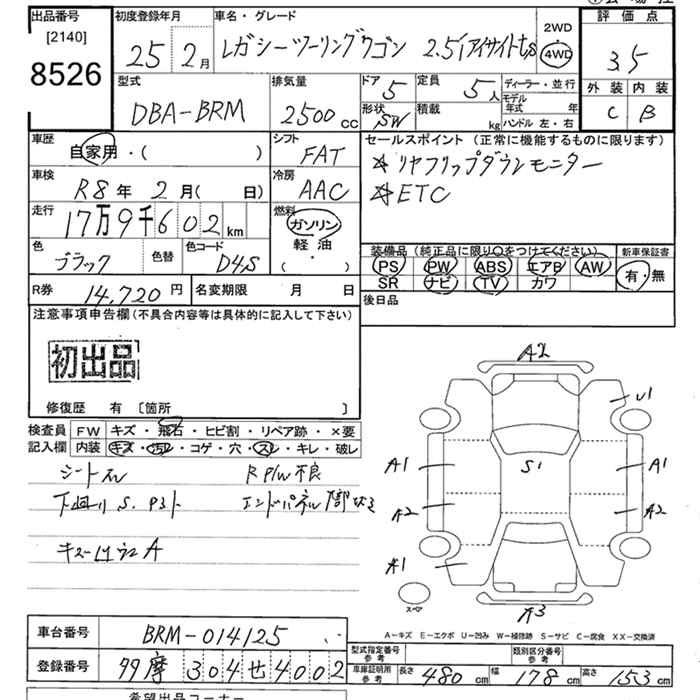 出品番号 [2140] 8526
初度登録年月 25 2月
車名・グレード レガシーツーリングワゴン 2.5i アイサイトt,s
2WD
4WD
評価点 35
外装 内装
C B
型式 DBA-BRM
排気量 2500 cc
ドア 5
定員 5人
形状 SW
積載 kg
ディーラー・並行
モデル年式 年
ハンドル 左・右
車歴 自家用・( )
シフト FAT
セールスポイント (正常に機能するものに限ります)
☆リヤフリップダウンモニター
☆ETC
車検 R8年 2月( 日)
冷房 AAC
走行 17万9千602 km
燃料 ガソリン
軽油
( ・ )
色 ブラック
色替
色コード D4S
装備品 (純正品に限り〇をつけてください)
新車保証書
PS PW ABS エアB AW
有・無
SR ナビ TV カワ
R券 14,720円
名変期限 月 日
後日品
注意事項申告欄(不具合内容等は具体的に記入して下さい)
初出品
修復歴 有 [箇所 ]
検査員記入欄
FW キズ・飛石・ヒビ割・リペア跡・×要
内装 キズ・汚れ・コゲ・穴・スレ・キレ・破レ
シートスレ R P/W不良
下廻りS.
A
A2
U1
A1 S1 A1
A2 A2
A1
スペア
A3
A-キズ E-エクボ U-凹み W-補修跡 S-サビ C-腐食 XX-交換済
車台番号 BRM-014125
登録番号 99 摩 304 せ 4002
型式指定番号 参考
類別区分番号 参考
車庫証明用 参考 長さ 480cm 幅 178cm 高さ 153cm
希望出品コーナー